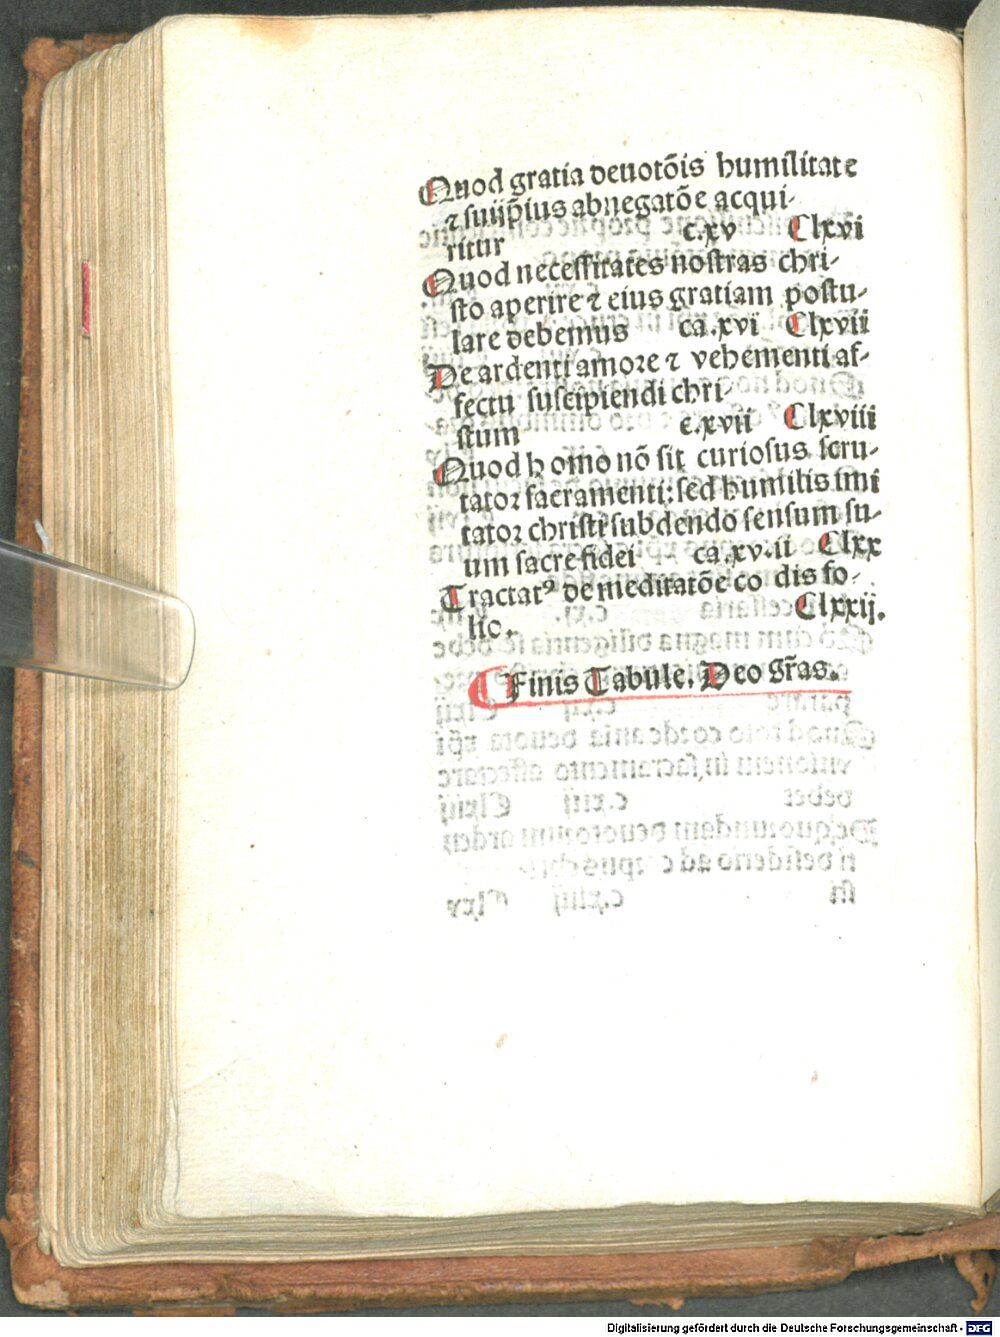 Quod gratia deuotõis humilitate
⁊ suiip̃ius abnegatõe acqui⸗
ritur c.xv Clxvi
Quod necessitates nostras chri⸗
sto aperire ⁊ eius gratiam postu⸗
lare debemus ca.xvi Clxvii
De ardenti amore ⁊ vehementi af⸗
fectu suscipiendi chri⸗
stum c.xvii Clxviii
Quod homo nõ sit curiosus scru⸗
tator sacramenti: sed humilis imi
tator christi subdendo sensum su⸗
um sacre fidei ca.xv.ii Clxx
Tractatꝰ de meditatõe co dis fo⸗
lio. Clxxij.
Finis Tabule. Deo gr̃as.
Digitalisierung gefördert durch die Deutsche Forschungsgemeinschaft - DFG